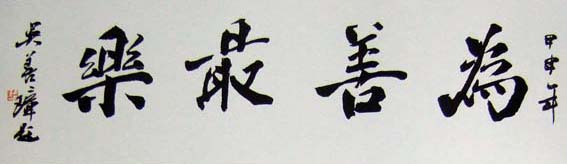 甲申年
為善最樂
吳善璋題